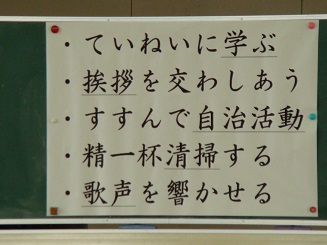 ・ていねいに学ぶ
・挨拶を交わしあう
・すすんで自治活動
・精一杯清掃する
・歌声を響かせる